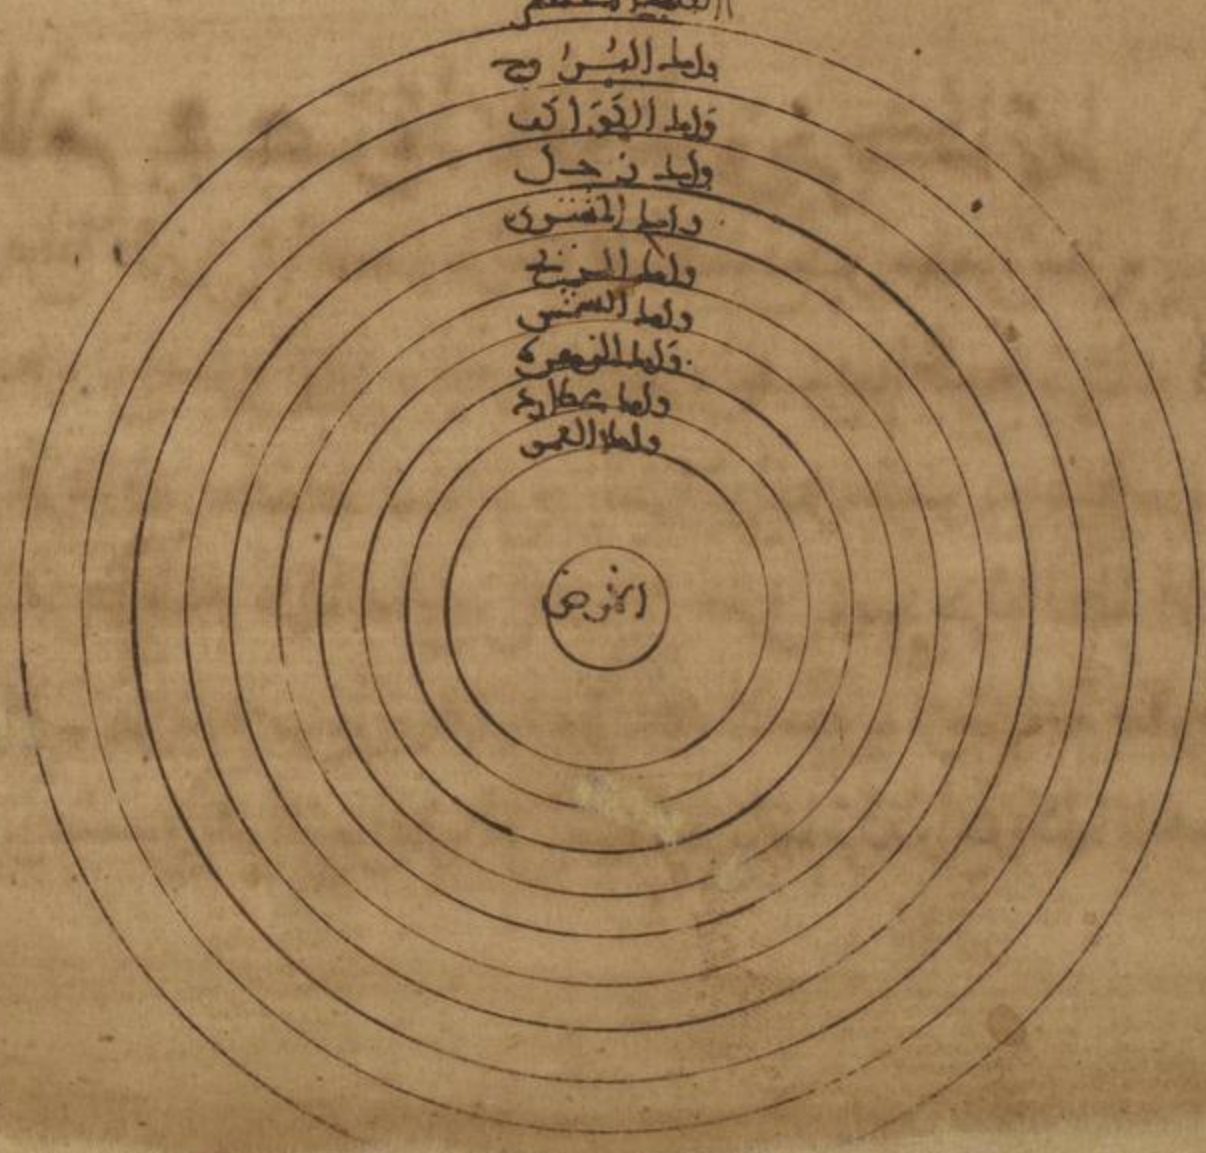 فلك البروج
فلك الكواكب
فلك زحل
فلك المشتري
فلك المريخ
فلك الشمس
فلك الزهرة
فلك عطارد
فلك القمر
الأرض